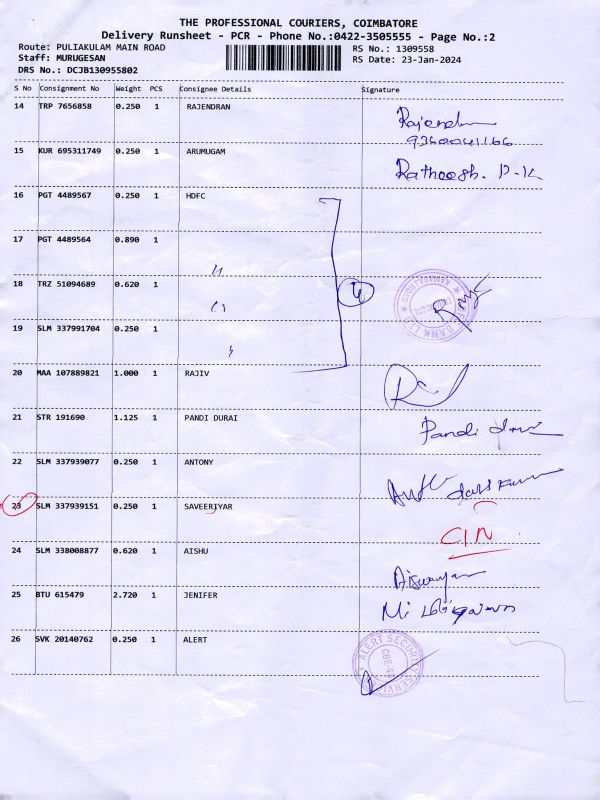 THE PROFESSIONAL COURIERS, COIMBATORE
Delivery Runsheet - PCR - Phone No.:0422-3505555 - Page No.:2
Route: PULIAKULAM MAIN ROAD RS No.: 1309558
Staff: MURUGESAN RS Date: 23-Jan-2024
DRS No.: DCJB130955802
S No Consignment No Weight PCS Consignee Details Signature
14 TRP 7656858 0.250 1 RAJENDRAN
Rajendran
9360041166
15 KUR 695311749 0.250 1 ARUMUGAM
Rathoosh. D.K
16 PGT 4489567 0.250 1 HDFC
17 PGT 4489564 0.890 1
18 TRZ 51094689 0.620 1 4
BANK LTD
RAMANATHAPURAM
19 SLM 337991704 0.250 1
20 MAA 107889821 1.000 1 RAJIV
21 STR 191690 1.125 1 PANDI DURAI
Pandi
22 SLM 337939077 0.250 1 ANTONY
23 SLM 337939151 0.250 1 SAVEERIYAR
CIN
24 SLM 338008877 0.620 1 AISHU
25 BTU 615479 2.720 1 JENIFER
26 SVK 20140762 0.250 1 ALERT
ALERT SECURITY SERVICES
CBE-45